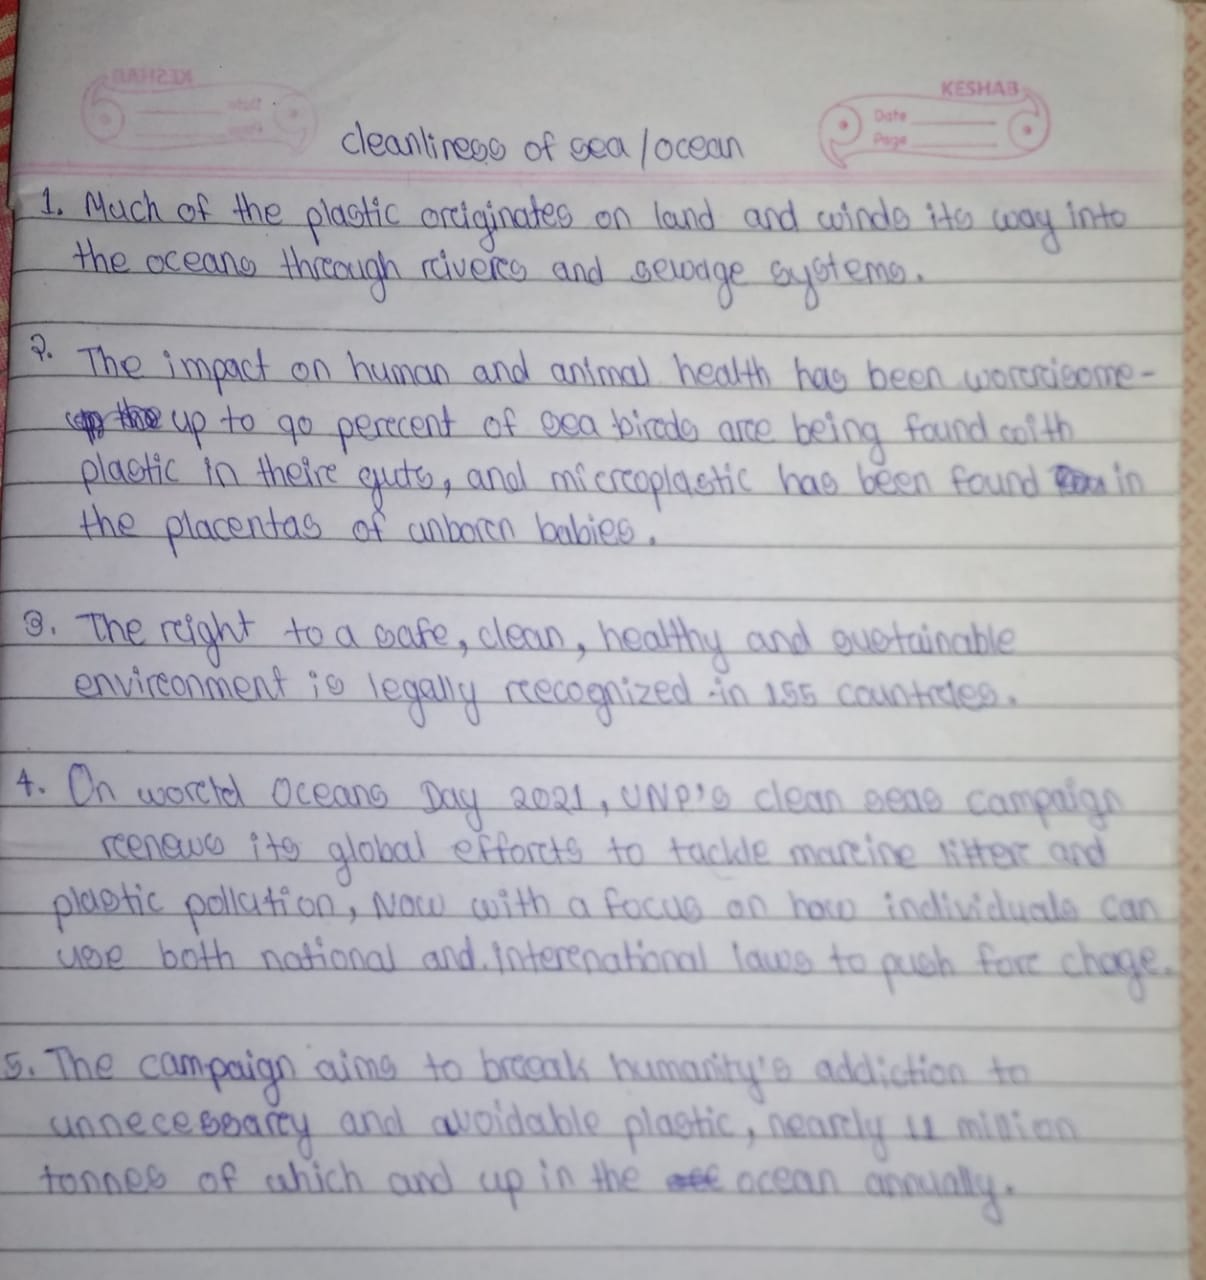 KESHAB
Date
Page
cleanliness of sea/ocean
1. Much of the plastic originates on land and winds its way into
the oceans through rivers and sewage systems.
2. The impact on human and animal health has been worrisome-
up to 90 percent of sea birds are being found with
plastic in their guts, and microplastic has been found in
the placentas of unborn babies.
3. The right to a safe, clean, healthy and sustainable
environment is legally recognized in 155 countries.
4. On world Oceans Day 2021, UNP's clean seas campaign
renews its global efforts to tackle marine litter and
plastic pollution, Now with a focus on how individuals can
use both national and international laws to push for chage.
5. The campaign aims to break humanity's addiction to
unnecessary and avoidable plastic, nearly 11 million
tonnes of which and up in the ocean annually.